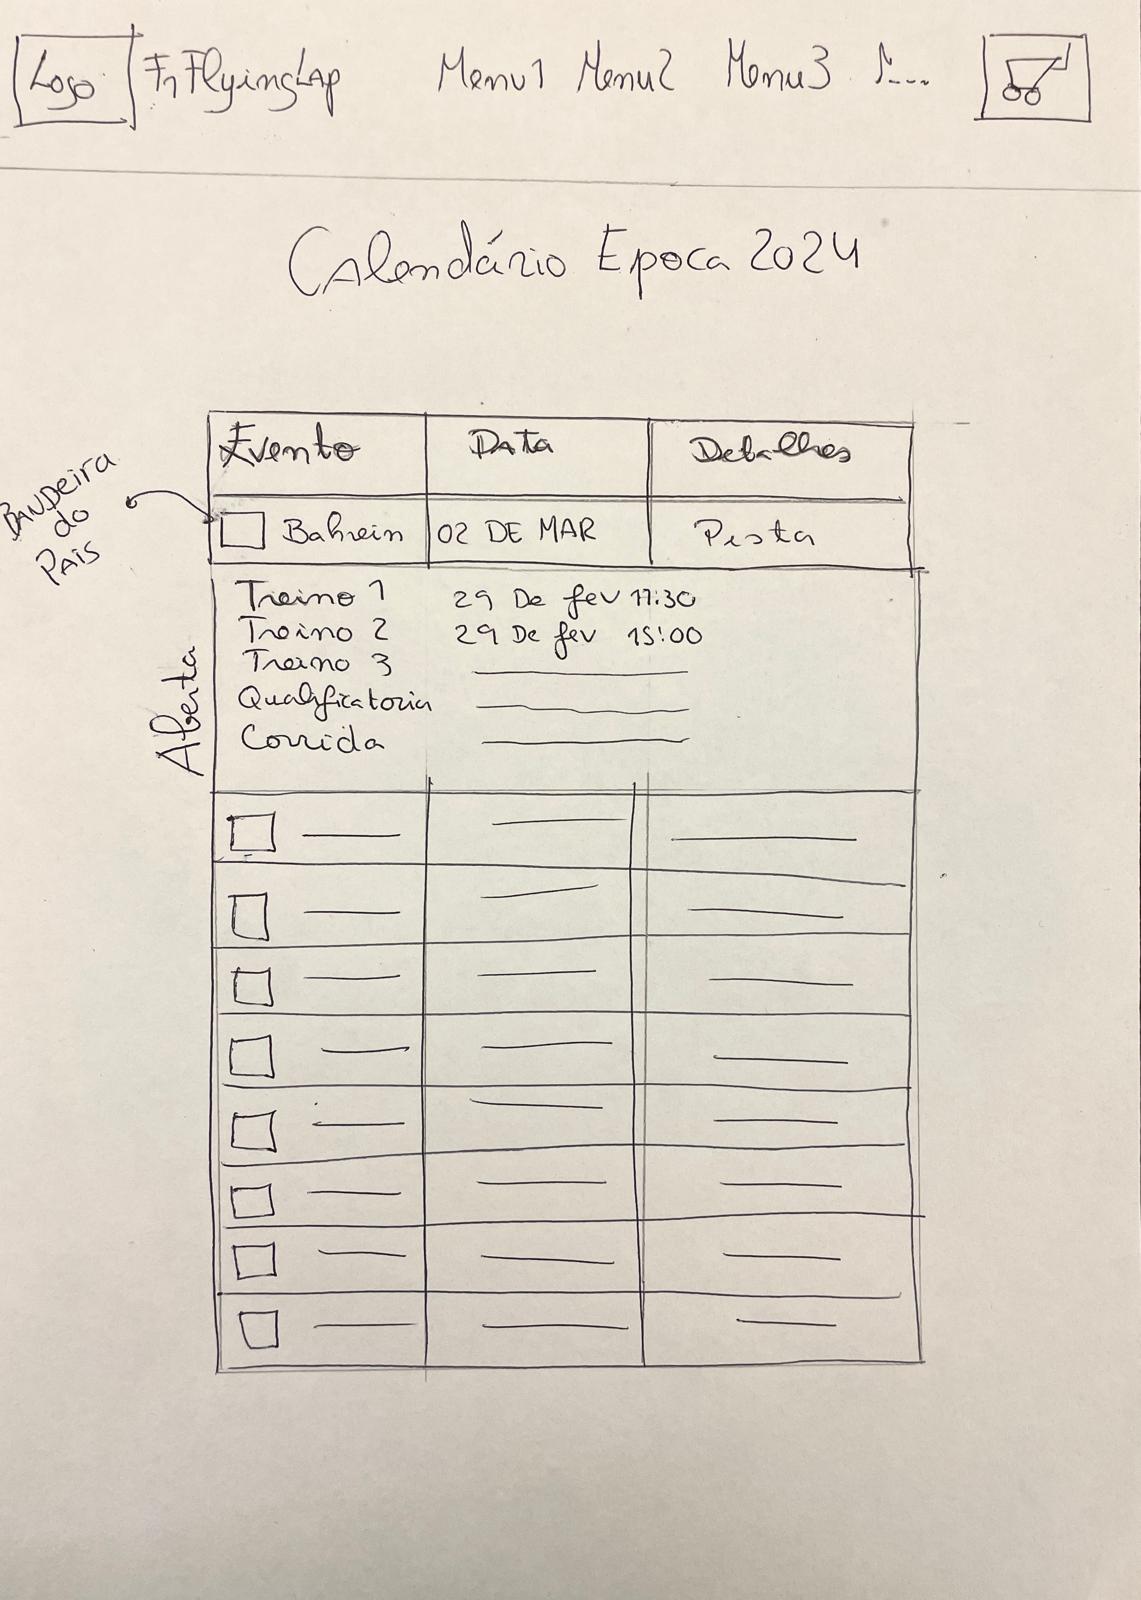 Logo F1 FlyingLap Menu1 Menu2 Menu3
Calendário Epoca 2024
Evento Data Detalhes
Bandeira
do
País
Bahrein 02 DE MAR Pista
Aberta
Treino 1 29 De fev 11:30
Treino 2 29 De fev 15:00
Treino 3
Qualificatoria
Corrida